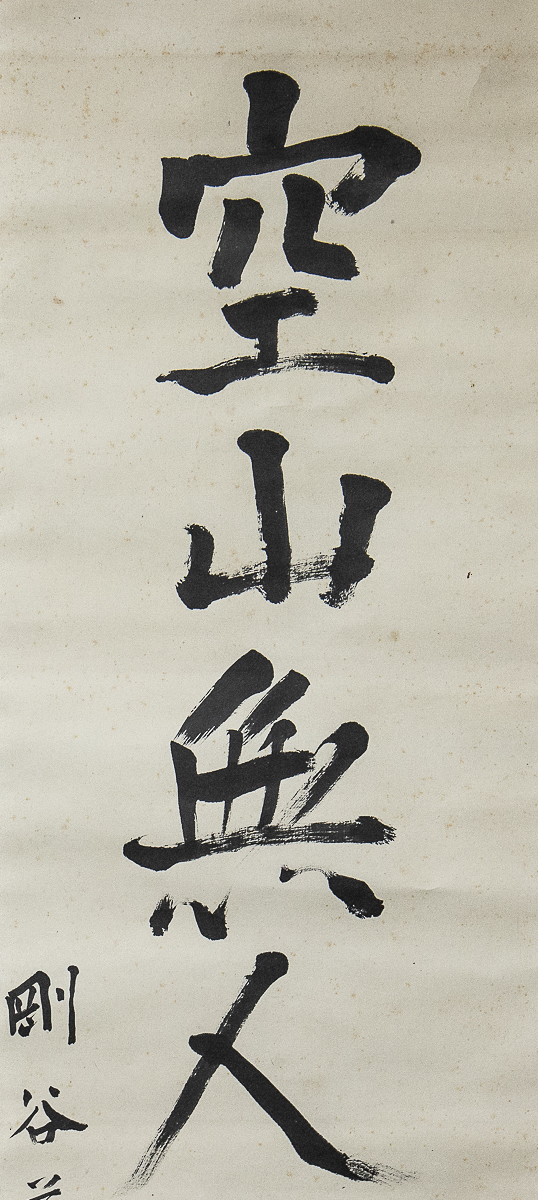 空山無人
剛谷